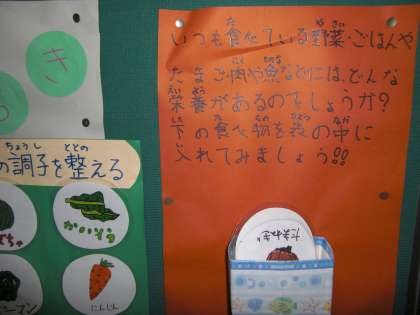 き
ちょうし ととの
の調子を整える
かいそう
にんじん
いつも食べている野菜・ごはんや
たまご・肉や魚などには、どんな
栄養があるのでしょうか?
下の食べ物を表の中に
入れてみましょう!!
たまねぎ